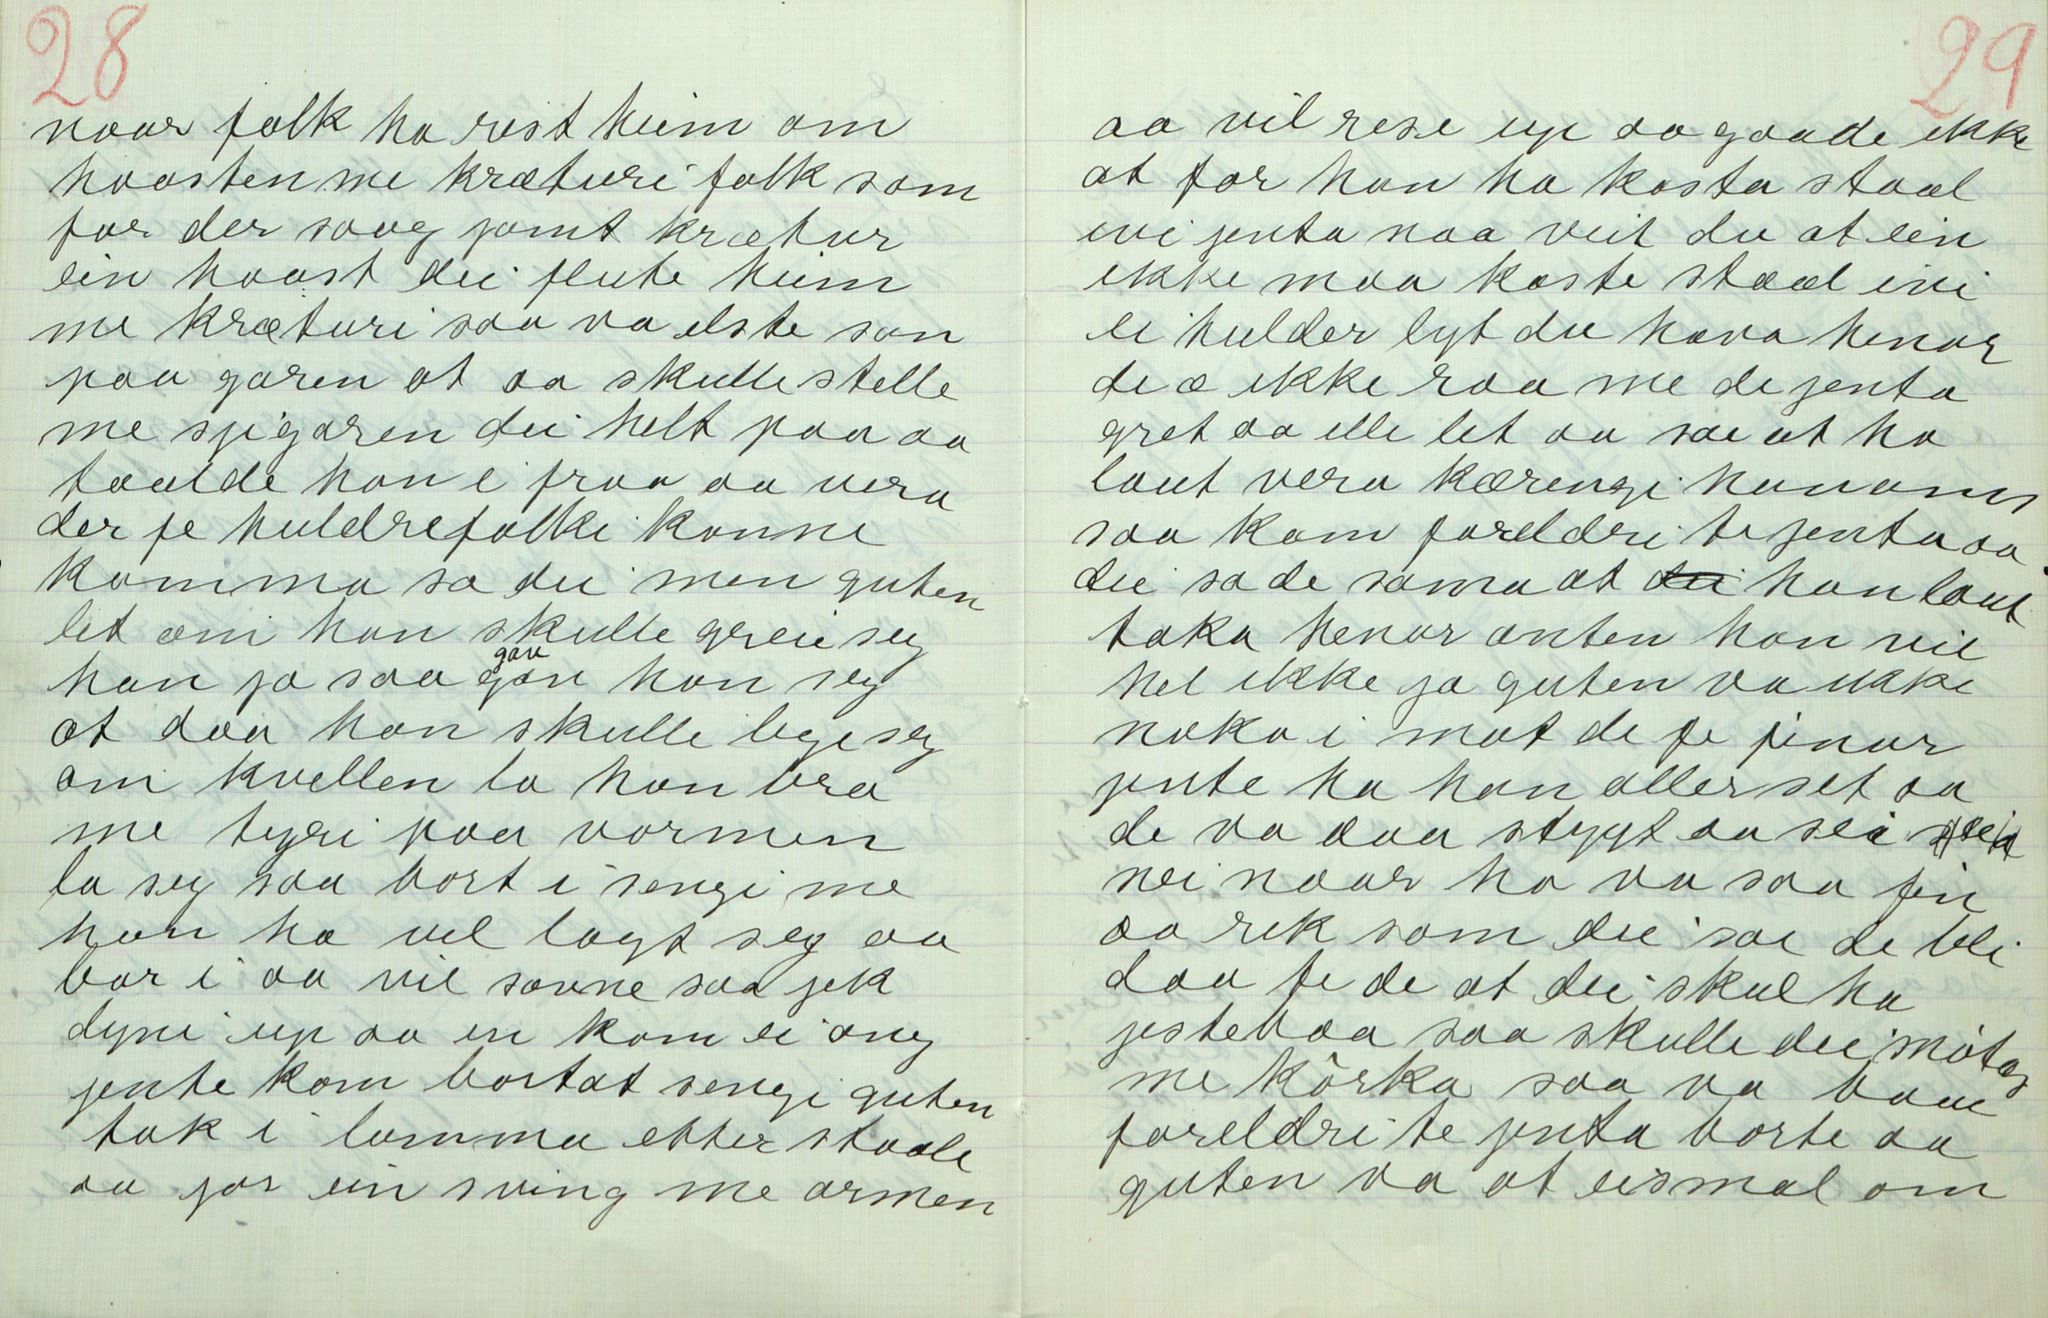 28
naar folk ha rest heim om
haasten me kræturi folk som
for der saag jamt krætur
ein haast dei flute heim
me kræturi saa va elste son
paa garen at aa skulle stelle
me spigaren dei helt paa aa
taalde han i fraa aa vera
der fe huldrefolki kanne
komma sa dei men guten
let om han skulle greie seg
han ja saa gav han seg
at daa han skulle lege seg
om kvellen la han bra
me tyri paa varmen
la seg saa bort i sengi me
han ha vel lagt seg aa
bar i aa vil sovne saa jek
dyni up aa in kom ei ong
jente kom bortat sengi guten
tok i lomma etter staale
aa jor ein sving me armen
29
aa vil rese up aa gaade ikke
at for han ha kasta staal
ivi jenta naa veit du at ein
ikke maa kaste staal ivi
ei hulder lyt du hava henar
de æ ikke raa me de jenta
gret aa ille let aa sae at ho
laut vera kærengi hanoms
saa kom foreldri te jenta aa
dei sa de sama at dei han laut
taka henar anten han vil
hel ikke ja guten va ikke
noko i mot de fe finar
jente ha han aller set aa
de va daa stygt aa sei
nei naar ho va saa fin
aa rik som dei sae de blei
daa te de at dei skul ha
jestebaa saa skulle dei møtas
me kôrka saa va baae
foreldri te jenta borte aa
guten va at eismal om